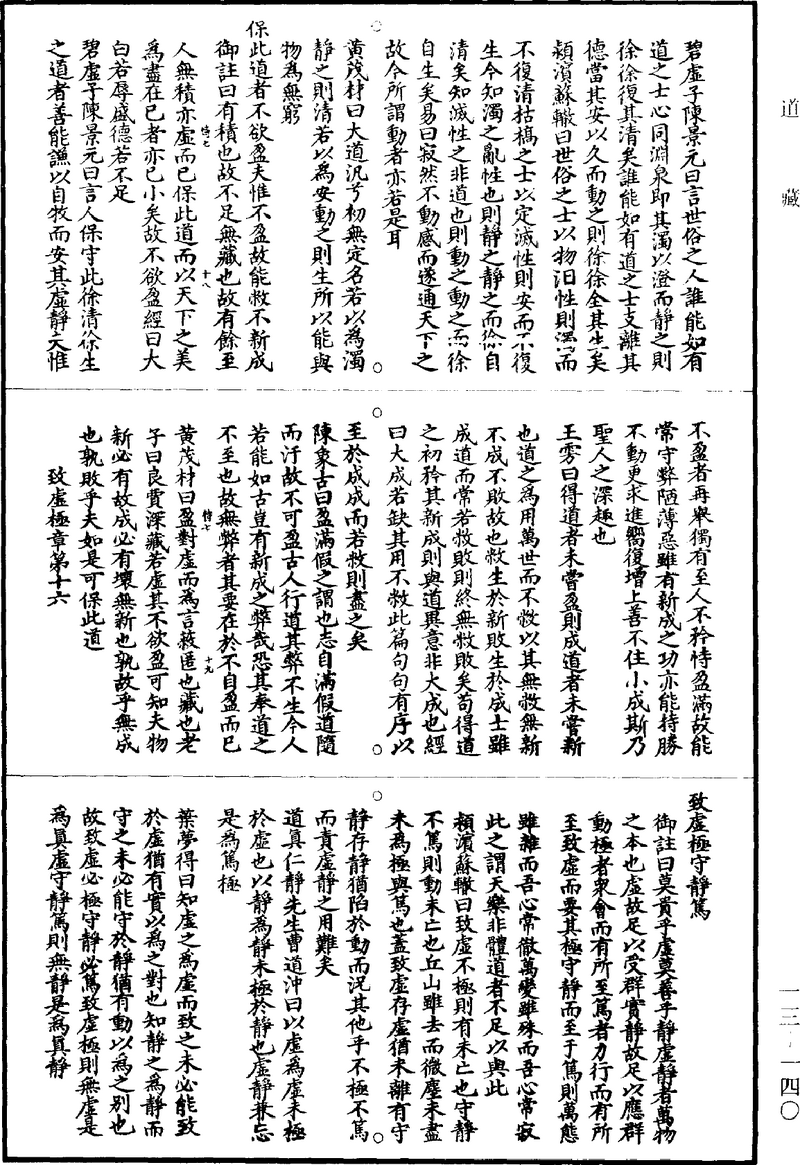 道藏
一三-一四〇
碧虛子陳景元曰言世俗之人誰能如有
道之士心同淵泉即其濁以澄而靜之則
徐徐復其清矣誰能如有道之士支離其
德當其安以久而動之則徐徐全其生矣
潁濱蘇轍曰世俗之士以物汩性則濁而
不復清枯槁之士以定滅性則安而不復
生今知濁之亂性也則靜之靜之而徐自
清矣知滅性之非道也則動之動之而徐
自生矣易曰寂然不動感而遂通天下之
故今所謂動者亦若是耳
黃茂材曰大道汎兮初無定名若以為濁
靜之則清若以為安動之則生所以能與
物為無窮
保此道者不欲盈夫惟不盈故能敝不新成
御註曰有積也故不足無藏也故有餘至
人無積亦虛而已保此道而以天下之美
為盡在己者亦已小矣故不欲盈經曰大
白若辱盛德若不足
碧虛子陳景元曰言人保守此徐清徐生
之道者善能謙以自牧而安其虛靜矣惟
恃七
十八
不盈者再舉獨有至人不矜恃盈滿故能
常守弊陋薄惡雖有新成之功亦能持勝
不動更求進嚮復增上善不住小成斯乃
聖人之深趣也
王雱曰得道者未嘗盈則成道者未嘗新
也道之為用萬世而不敝以其無敝無新
不成不敗故也敝生於新敗生於成士雖
成道而常若敝敗則終無敝敗矣苟得道
之初矜其新成則與道異意非大成也經
曰大成若缺其用不敝此篇句句有序以
至於成成而若敝則盡之矣
陳象古曰盈滿假之謂也志自滿假道隨
而汙故不可盈古人行道其弊不生今人
若能如古豈有新成之弊哉恐其奉道之
不至也故無弊者其要在於不自盈而已
黃茂材曰盈對虛而為言蔽匿也藏也老
子曰良賈深藏若虛其不欲盈可知夫物
新必有故成必有壞無新也孰故乎無成
也孰敗乎夫如是可保此道
致虛極章第十六
恃七
十九
致虛極守靜篤
御註曰莫貴乎虛莫善乎靜虛靜者萬物
之本也虛故足以受群實靜故足以應群
動極者眾會而有所至篤者力行而有所
至致虛而要其極守靜而至于篤則萬態
雖雜而吾心常徹萬變雖殊而吾心常寂
此之謂天樂非體道者不足以與此
潁濱蘇轍曰致虛不極則有未亡也守靜
不篤則動未亡也丘山雖去而微塵未盡
未為極與篤也蓋致虛存虛猶未離有守
靜存靜猶陷於動而況其他乎不極不篤
而責虛靜之用難矣
道真仁靜先生曹道沖曰以虛為虛未極
於虛也以靜為靜未極於靜也虛靜兼忘
是為篤極
葉夢得曰知虛之為虛而致之未必能致
於虛猶有實以為之對也知靜之為靜而
守之未必能守於靜猶有動以為之別也
故致虛必極守靜必篤致虛極則無虛是
為真虛守靜篤則無靜是為真靜